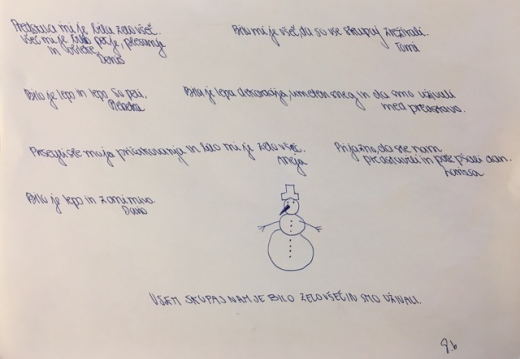 Predstava mi je bila zelo všeč.
Všeč mi je bilo petje, plesanje
in
Denis
Bilo mi je všeč, da so vse skupaj zrežirali.
Tomi
Bilo je lepo in lepo so peli.
Rebeka
Bila je lepa dekoracija, umeten sneg in da smo uživali
med predstavo.
Presegli ste moja pričakovanja in bilo mi je zelo všeč.
Maja
Prijazno, da ste nam
in polepšali dan.
Bilo je lepo in zanimivo.
VSEM SKUPAJ NAM JE BILO ZELO VŠEČ IN SMO UŽIVALI.
9.b